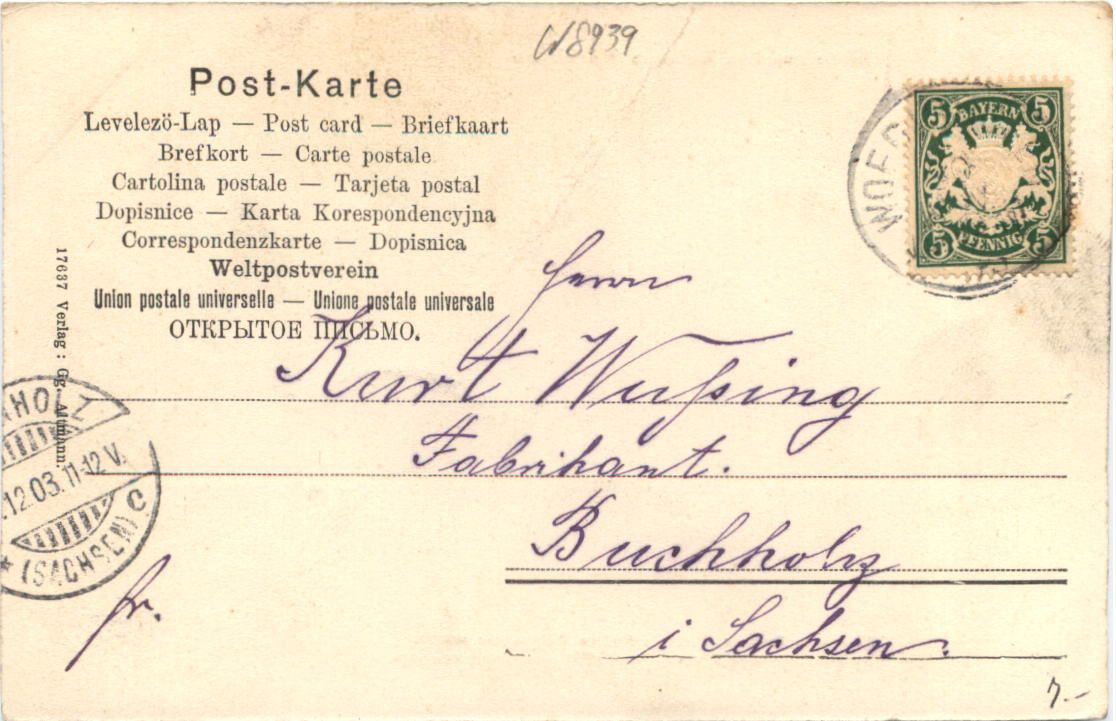 W8939
Post-Karte
Levelezö-Lap — Post card — Briefkaart
Brefkort — Carte postale
Cartolina postale — Tarjeta postal
Dopisnice — Karta Korespondencyjna
Correspondenzkarte — Dopisnica
Weltpostverein
Union postale universelle — Unione postale universale
ОТКРЫТОЕ ПИСЬМО.
5 BAYERN 5
5 PFENNIG 5
17637 Verlag: Gg. Attmann.
Herrn
Kurt Wußing
Fabrikant.
Buchholz
i Sachsen.
fr.
HHOLZ
.12.03.11-12 V.
* (SACHSEN) C
7.-